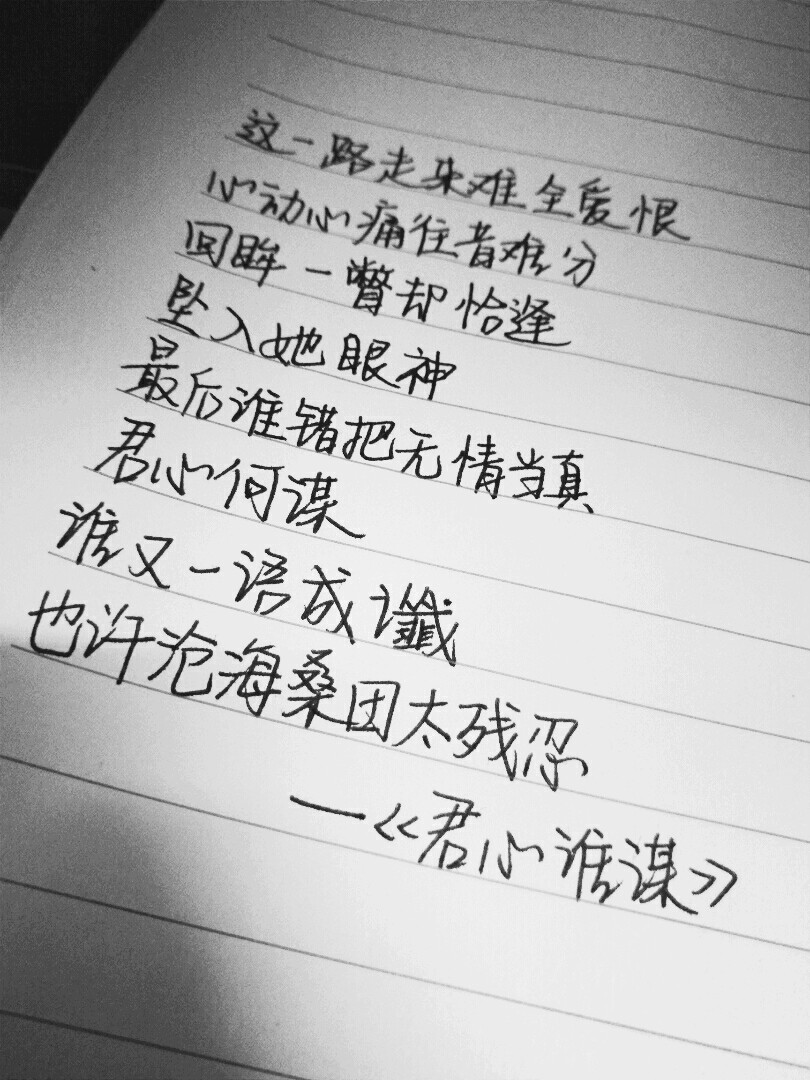 这一路走来难全爱恨
心动心痛往昔难分
回眸一瞥却恰逢
坠入她眼神
最后谁错把无情当真
君心何谋
谁又一语成谶
也许沧海桑团太残忍
—《君心谁谋》